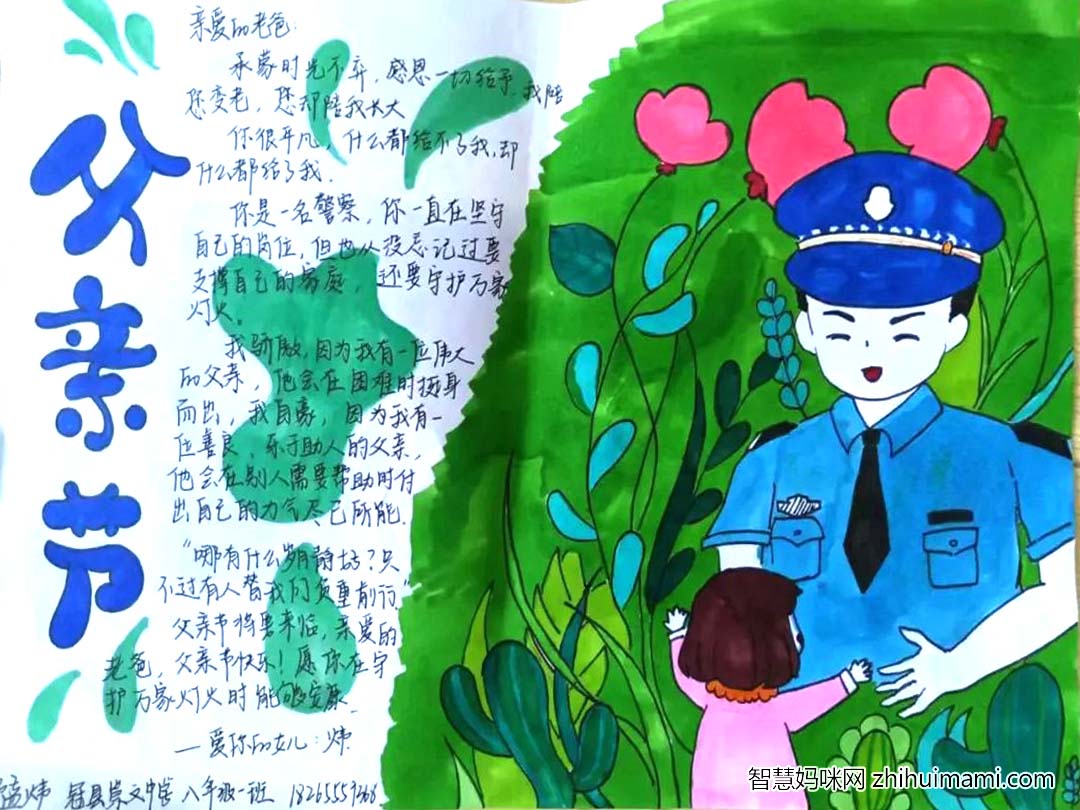 父亲节
亲爱的老爸:
承蒙时光不弃，感恩一切给予，我陪
您变老，您却陪我长大
你很平凡，什么都给不了我，却
什么都给了我.
你是一名警察，你一直在坚守
自己的岗位，但也从没忘记过要
支撑自己的家庭，还要守护万家
灯火。
我骄傲，因为我有一位伟大
的父亲，他会在困难时挺身
而出，我自豪，因为我有一
位善良，乐于助人的父亲，
他会在别人需要帮助时付
出自己的力气尽己所能.
“哪有什么岁月静好？只
不过有人替我们负重前行”
父亲节将要来临，亲爱的
老爸，父亲节快乐！愿你在守
护万家灯火时能够安康.
—爱你的女儿：炜
炜 冠县崇文中学 八年级一班
智慧妈咪网 zhihuimami.com